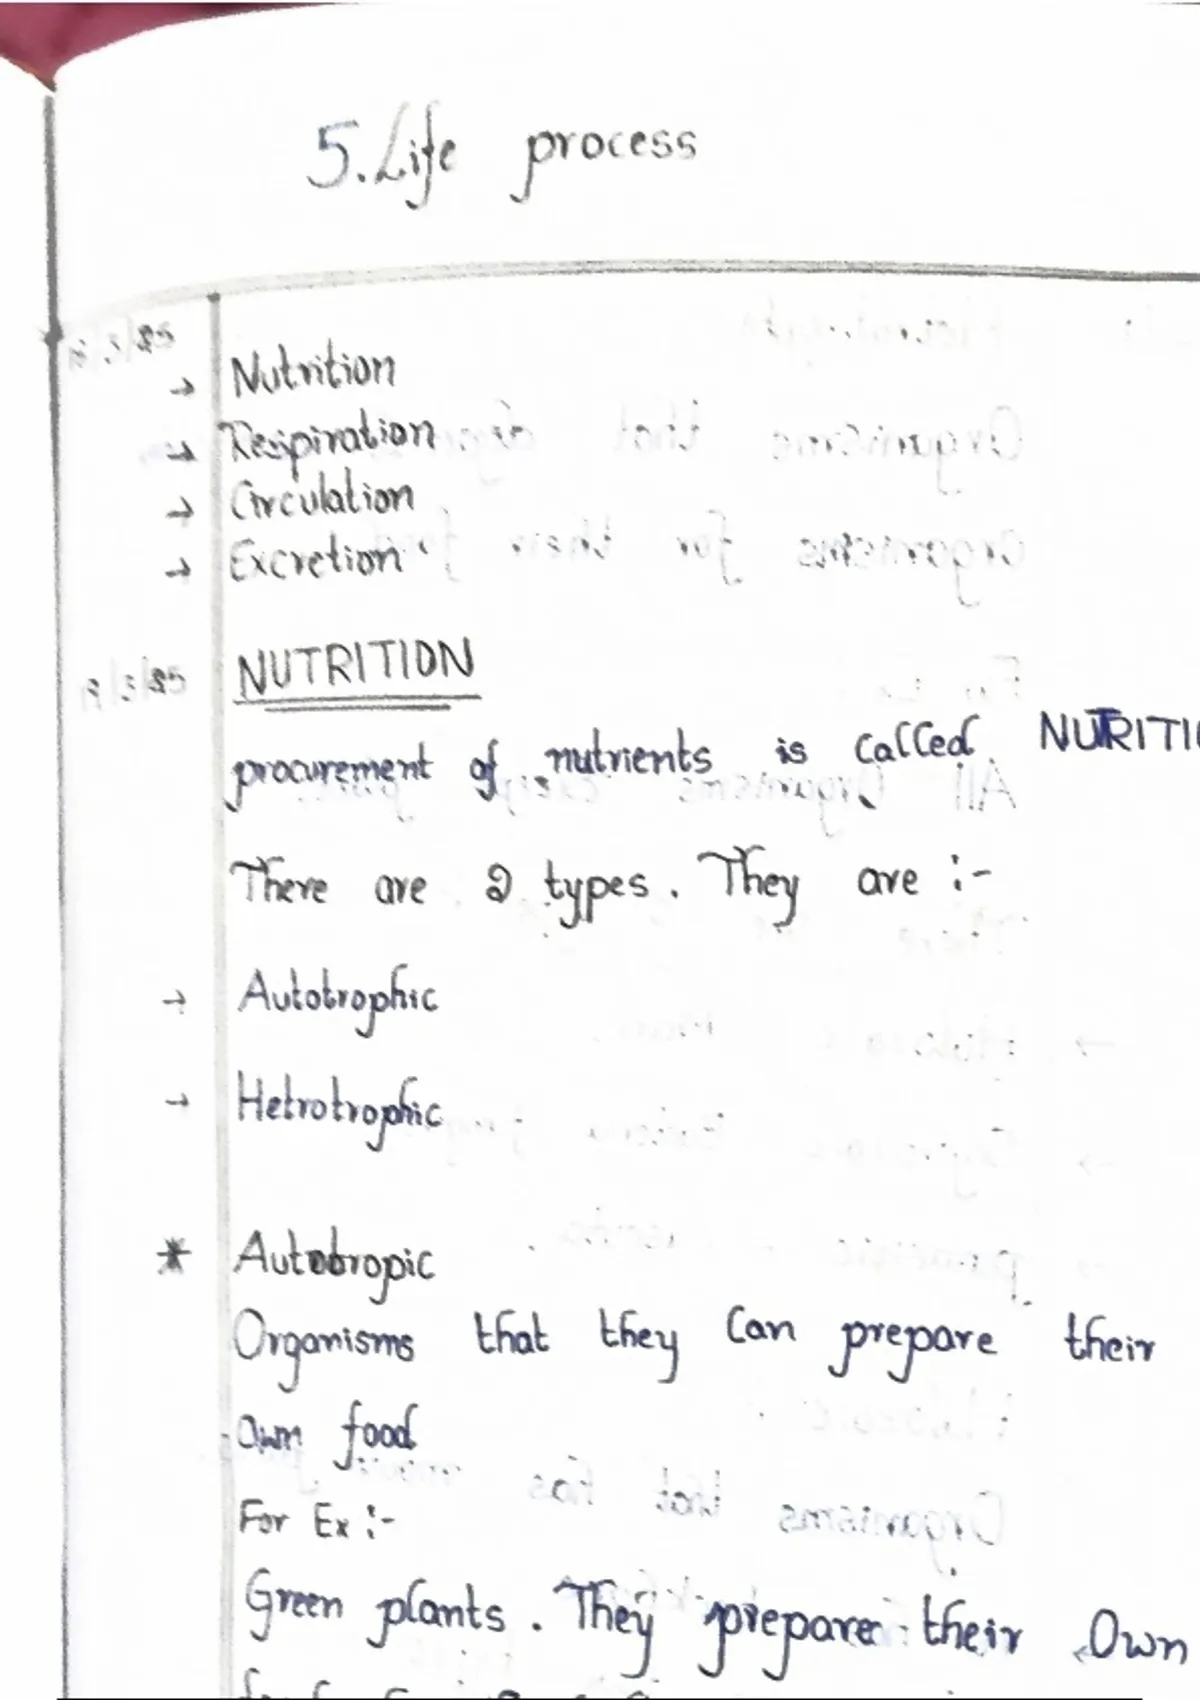 5. Life process
→ Nutrition
→ Respiration
→ Circulation
→ Excretion
NUTRITION
procurement of nutrients is called NUTRITI
There are 2 types. They are :-
→ Autotrophic
→ Hetrotrophic
* Autotropic
Organisms that they Can prepare their
Own food
For Ex :-
Green plants. They prepare their Own